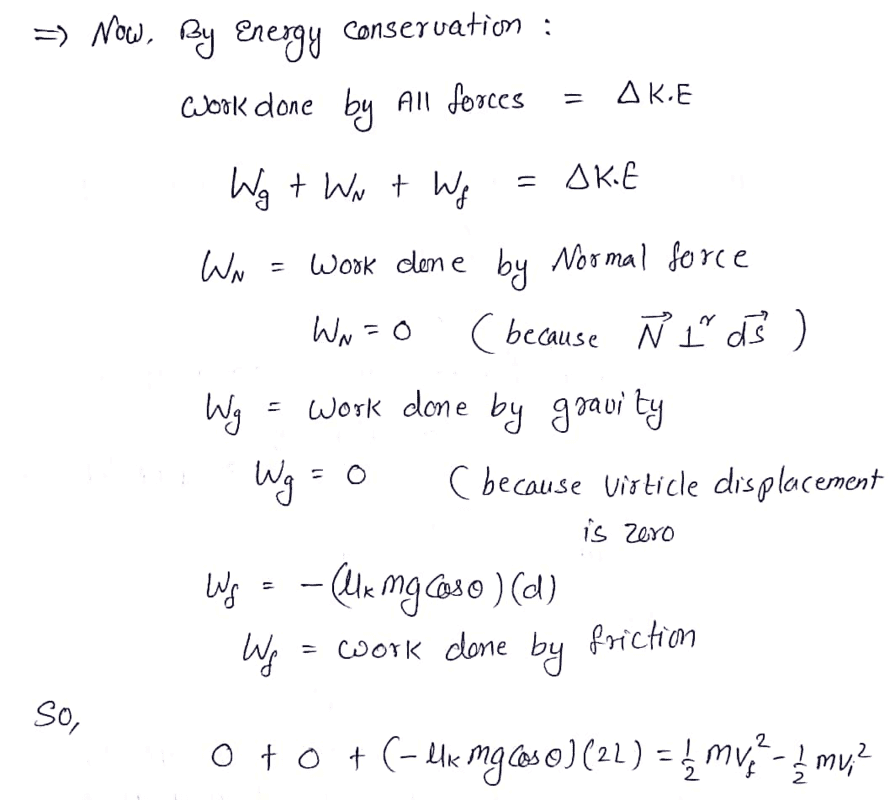 => Now, By Energy Conservation :
Work done by All forces = ΔK.E
Wg + WN + Wf = ΔK.E
WN = Work done by Normal force
WN = 0 (because N⃗ ⊥ʳ ds⃗ )
Wg = Work done by gravity
Wg = 0 (because virticle displacement
is zero
Wf = -(μk mg cosθ)(d)
Wf = work done by friction
So,
0 + 0 + (-μk mg cosθ)(2L) = ½ mvf² - ½ mvi²